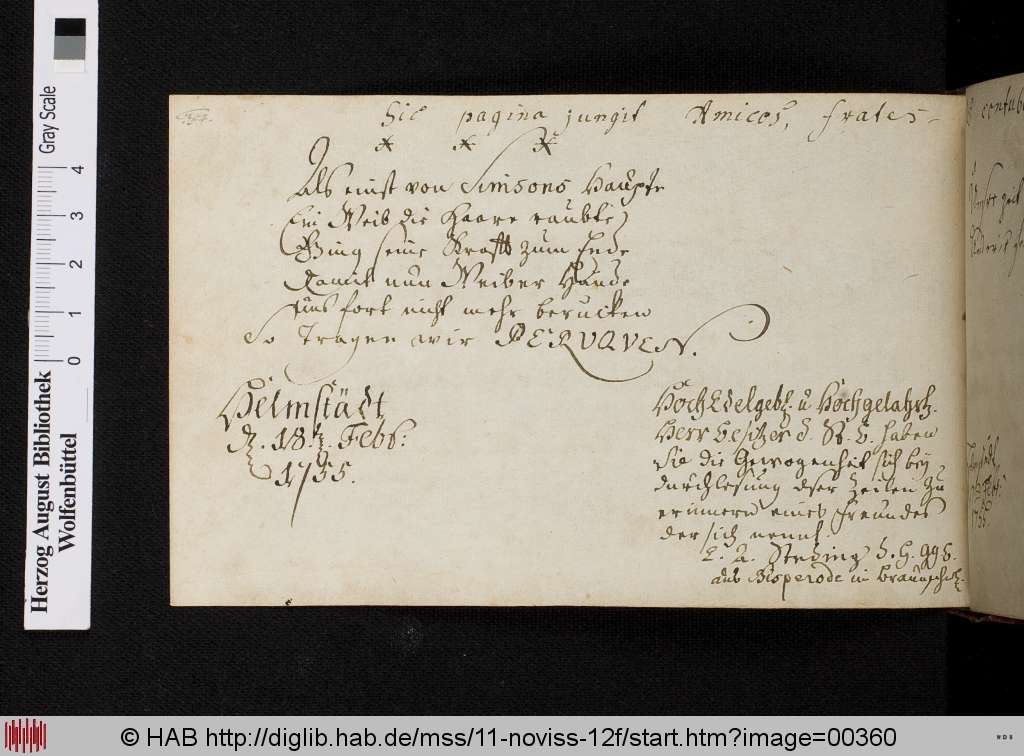 Hic pagina jungit Amicos, frates
Als einst von Simsons Haupte
Ein Weib die Haare raubte
Ging seine Krafft zum Ende
Damit nun Weiber Hände
Uns fort nicht mehr berucken
So Tragen wir PERUQVEN.
Helmstädt
d. 18. t. Febr.
1755.
HochEdelgeb. u Hochgelahrt.
Herr besitzer d. St. b. haben
Sie die Gewogenheit sich bey
durchlesung dser Zeilen zu
erinnern eines Freundes
der sich nennt.
aus Bisperode im Braunschw.
Herzog August Bibliothek
Wolfenbüttel
Gray Scale
0 1 2 3 4
© HAB http://diglib.hab.de/mss/11-noviss-12f/start.htm?image=00360